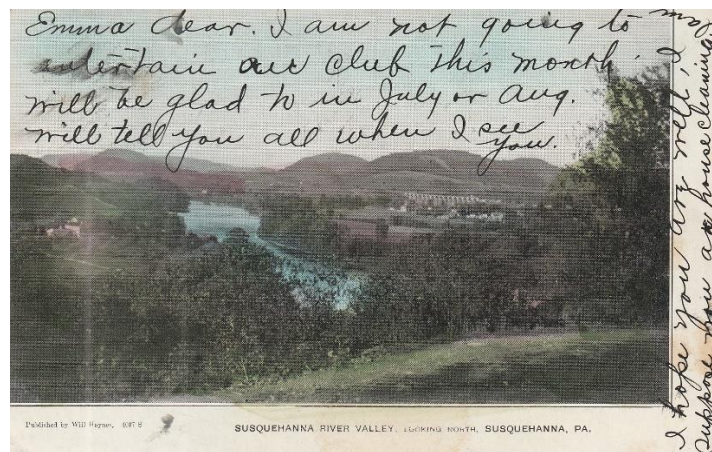 Emma dear. I am not going to
entertain our club this month.
will be glad to in July or Aug.
will tell you all when I see
you.
I hope you are well, I
suppose you are house cleaning.
Published by Will Haynes,
SUSQUEHANNA RIVER VALLEY, LOOKING NORTH, SUSQUEHANNA, PA.